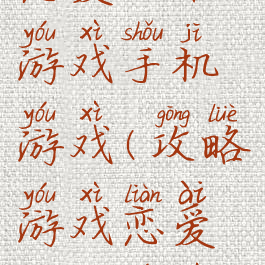 yóu xì shǒu jī
游戏手机
yóu xì gōng lüè
游戏(攻略
yóu xì liàn ài
游戏恋爱